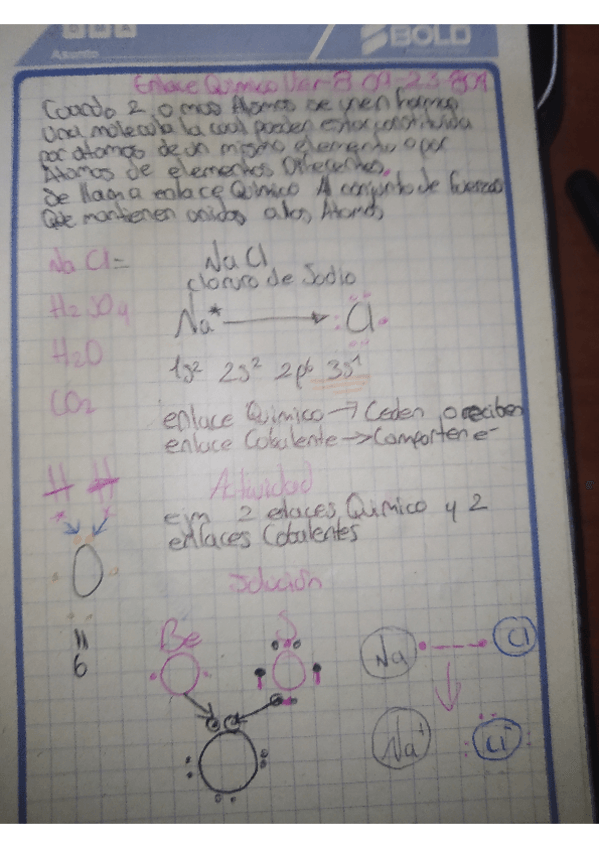 BOLD
Asunto
Enlace Quimico
Cuando 2 o mas Atomos se unen forman
una molecula la cual pueden estar constituida
por atomos de un mismo elemento o por
Atomos de elementos Diferentes.
Se llama enlace Quimico A conjunto de fuerzas
Que mantienen unidos a los Atomos
NaCl=
NaCl
cloruro de Sodio
H2SO4
Na* Cl
H2O
1s² 2s² 2p6 3s1
CO2
enlace Quimico → Ceden o reciben
enlace Cobalente → Comparten e-
H H
Actividad
ejm 2 elaces Quimico y 2
enlaces Cobalentes
O
Solución
6
Be
Na
Cl
Na+
Cl